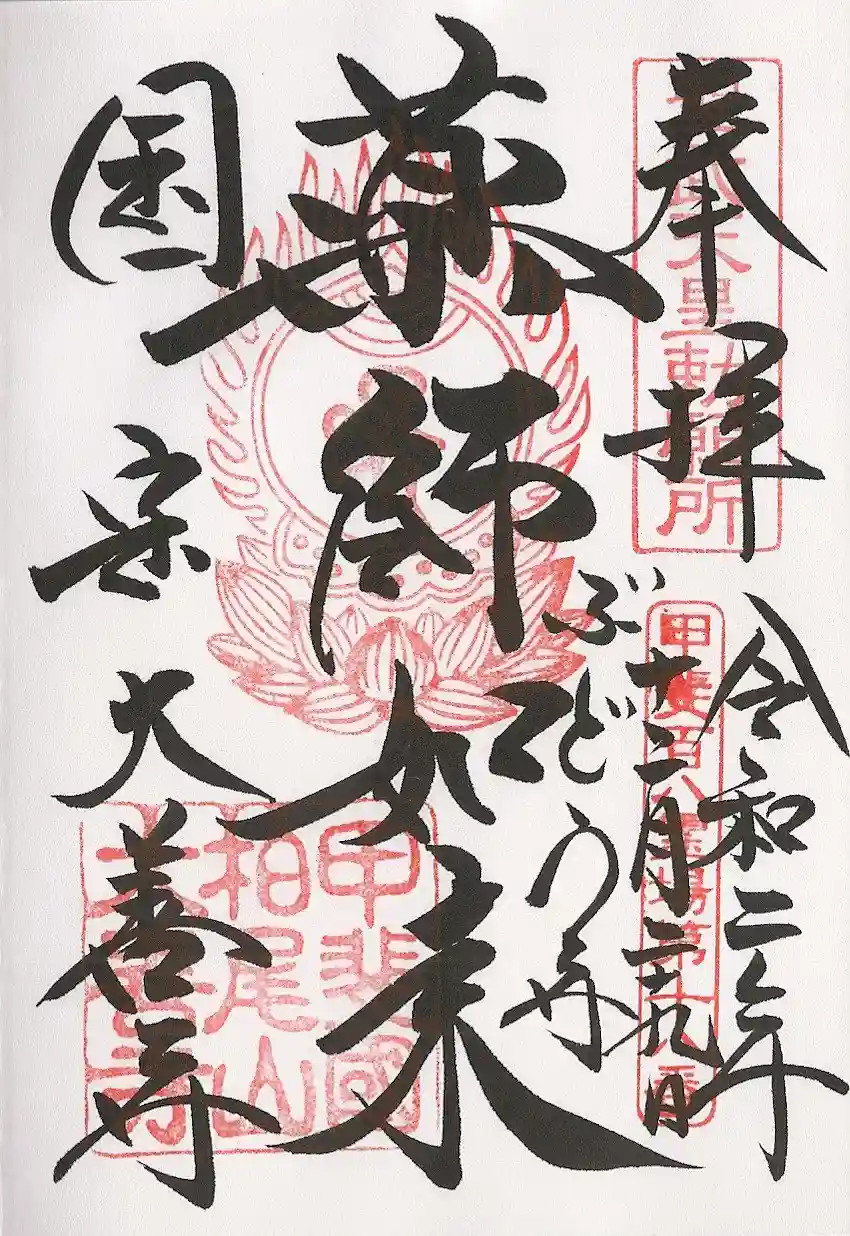 奉拝
聖武天皇勅願所
令和二年
十二月二十九日
甲斐百八霊場第
ぶどう寺
薬師如来
国宝 大善寺
甲斐國
柏尾山
大善寺